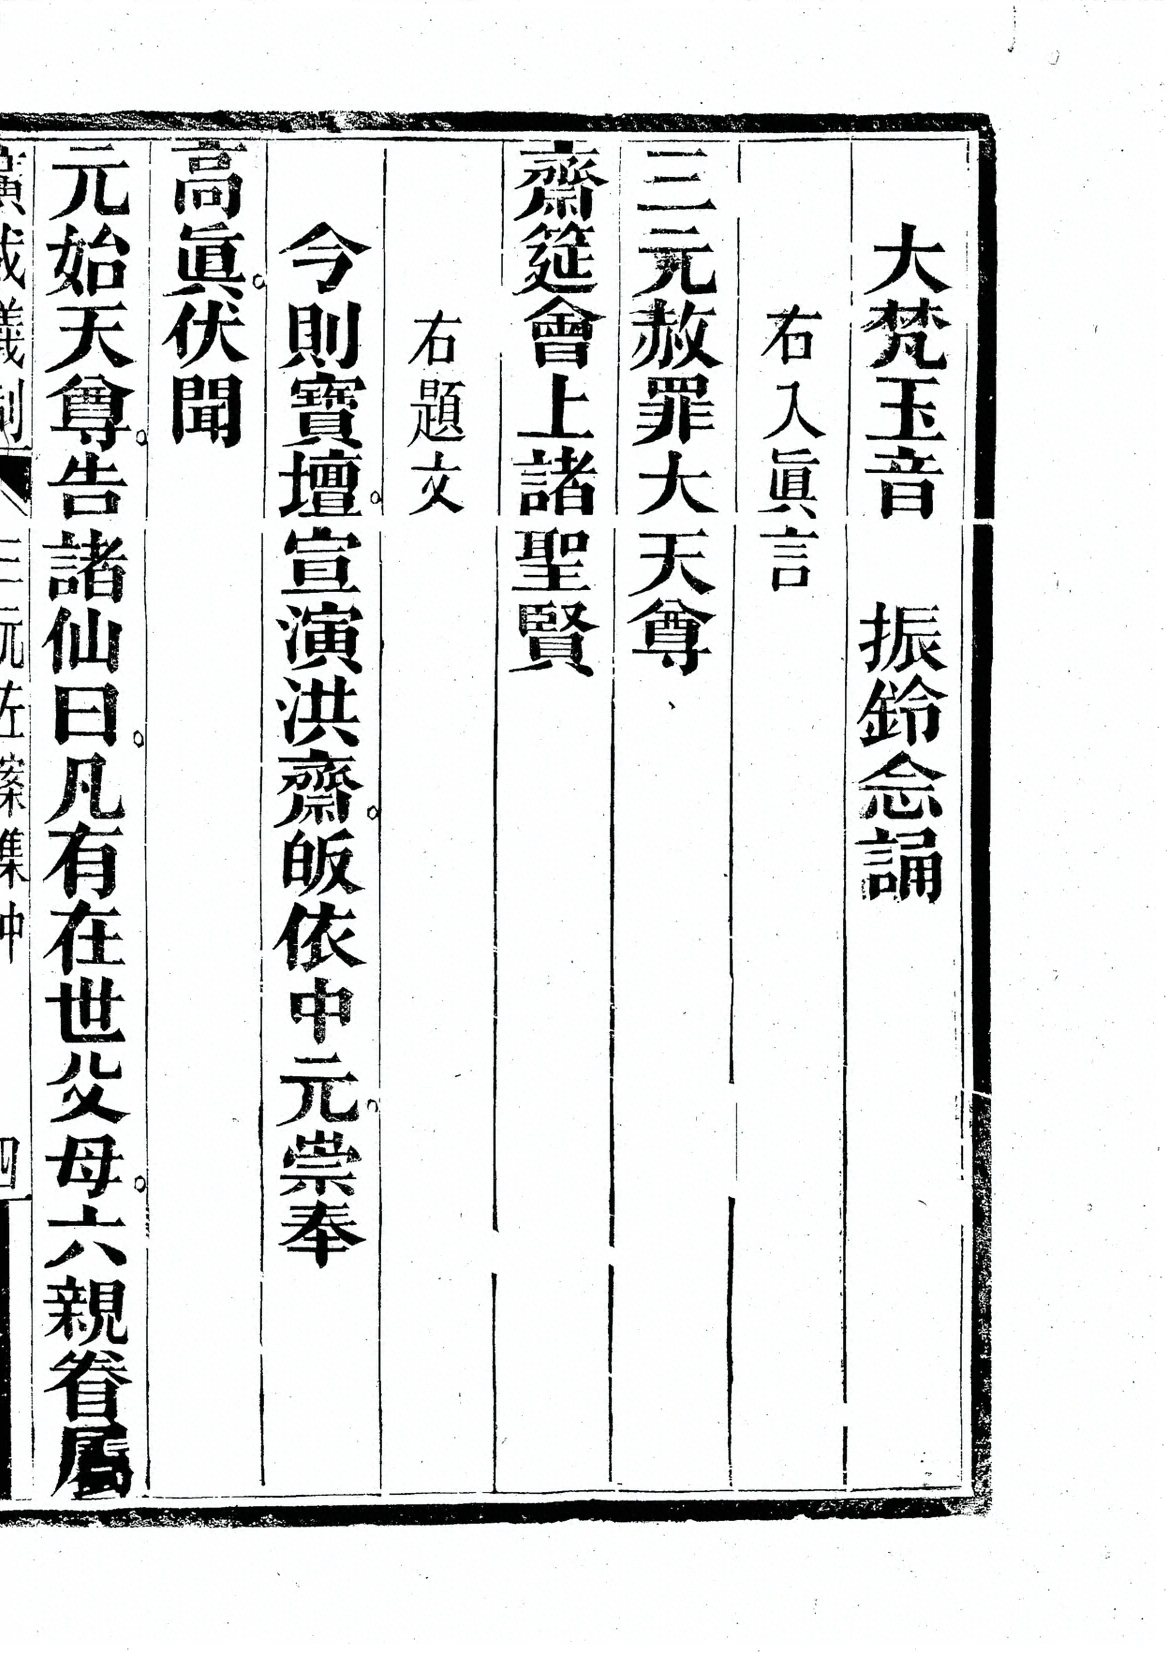 大梵玉音　振鈴念誦
右入眞言
三元赦罪大天尊
齋筵會上諸聖賢
右題文
今則寶壇。宣演洪齋。皈依中元。崇奉
高眞。伏聞
元始天尊。告諸仙曰。凡有在世父母。六親眷屬
廣成儀制
三元左案集
四